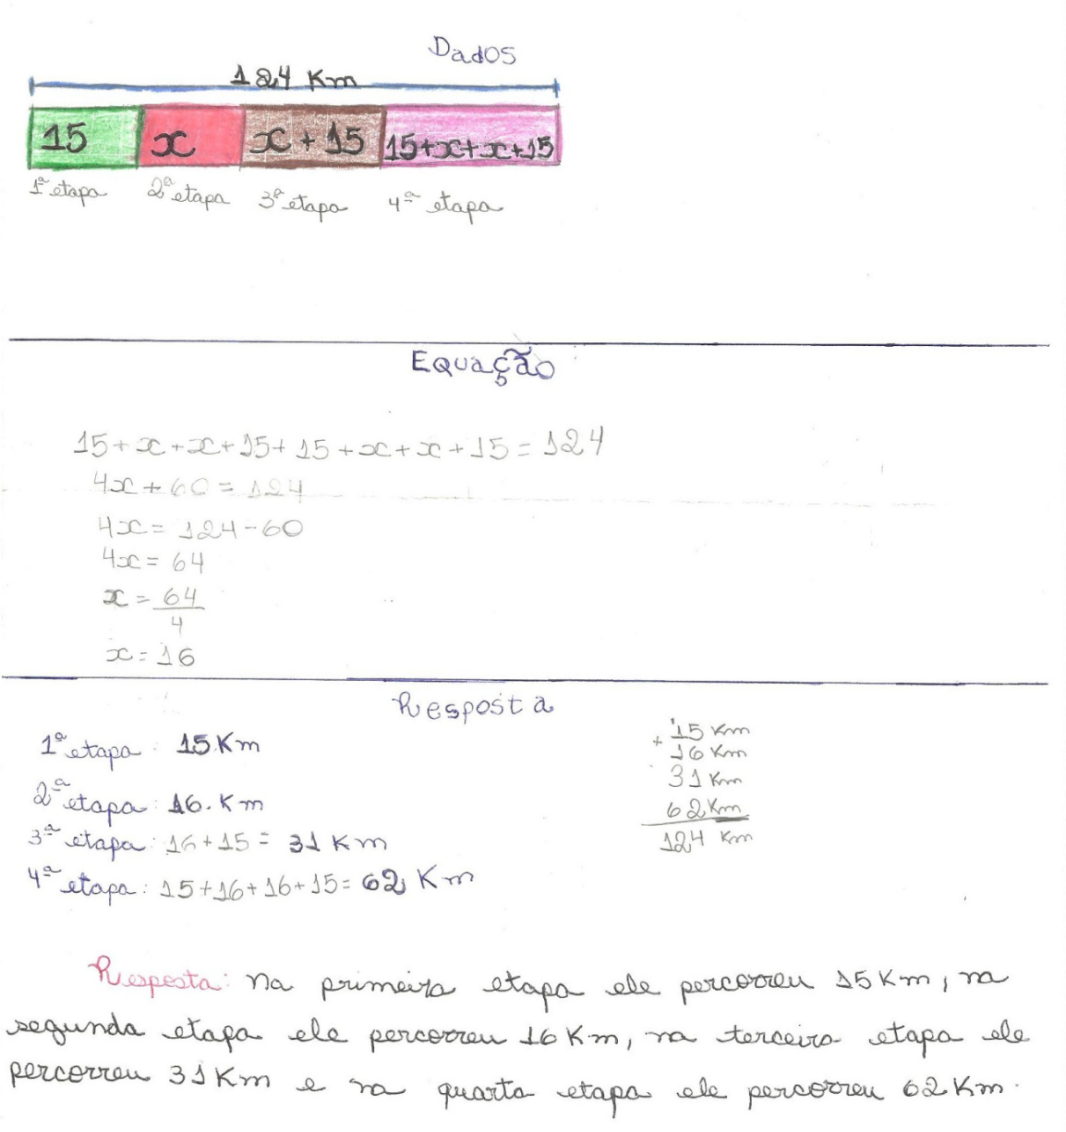 Dados
124 Km
15 x x + 15 15+x+x+15
1ª etapa 2ª etapa 3ª etapa 4ª etapa
Equação
15+x+x+15+15+x+x+15=124
4x+60=124
4x=124-60
4x=64
x=64
4
x=16
Resposta
1ª etapa: 15 Km
2ª etapa: 16. Km
3ª etapa: 16+15= 31 Km
4ª etapa: 15+16+16+15= 62 Km
+ 15 Km
16 Km
31 Km
62 Km
124 Km
Resposta: Na primeira etapa ele percorreu 15 Km, na
segunda etapa ele percorreu 16 Km, na terceira etapa ele
percorreu 31 Km e na quarta etapa ele percorreu 62 Km.